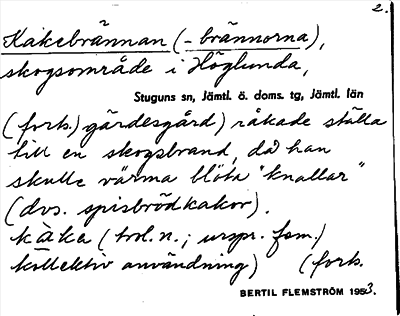 2.
Kakebrännan (- brännorna),
skogsområde i Höglunda,
Stuguns sn, Jämtl. ö. doms. tg, Jämtl. län
(forts.) gärdesgård) råkade ställa
till en skogsbrand, då han
skulle värma blöta "knallar"
(dvs. spisbrödkakor).
kàke (trol. n.; urspr. fsm./
kollektiv användning) (forts.
BERTIL FLEMSTRÖM 1953.